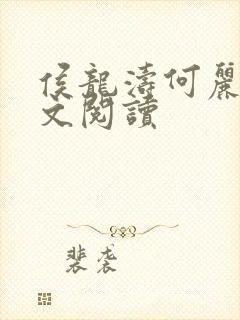 侯龍濤何麗
文閱讀
裴袭